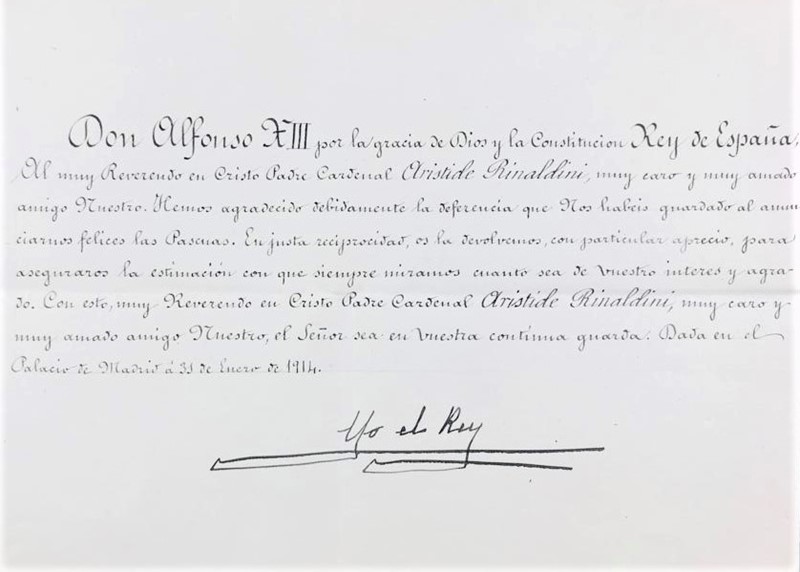 Don Alfonso XIII por la gracia de Dios y la Constitucion Rey de España,
Al muy Reverendo en Cristo Padre Cardenal Aristide Rinaldini, muy caro y muy amado
amigo Nuestro. Hemos agradecido debidamente la deferencia que Nos habeis guardado al anun-
ciarnos felices las Pascuas. En justa reciprocidad, os la devolvemos, con particular aprecio, para
aseguraros la estimación con que siempre miramos cuanto sea de Vuestro interes y agra-
do. Con esto, muy Reverendo en Cristo Padre Cardenal Aristide Rinaldini, muy caro y
muy amado amigo Nuestro, el Señor sea en Vuestra continua guarda. Dada en el
Palacio de Madrid á 31 de Enero de 1914.
Yo el Rey